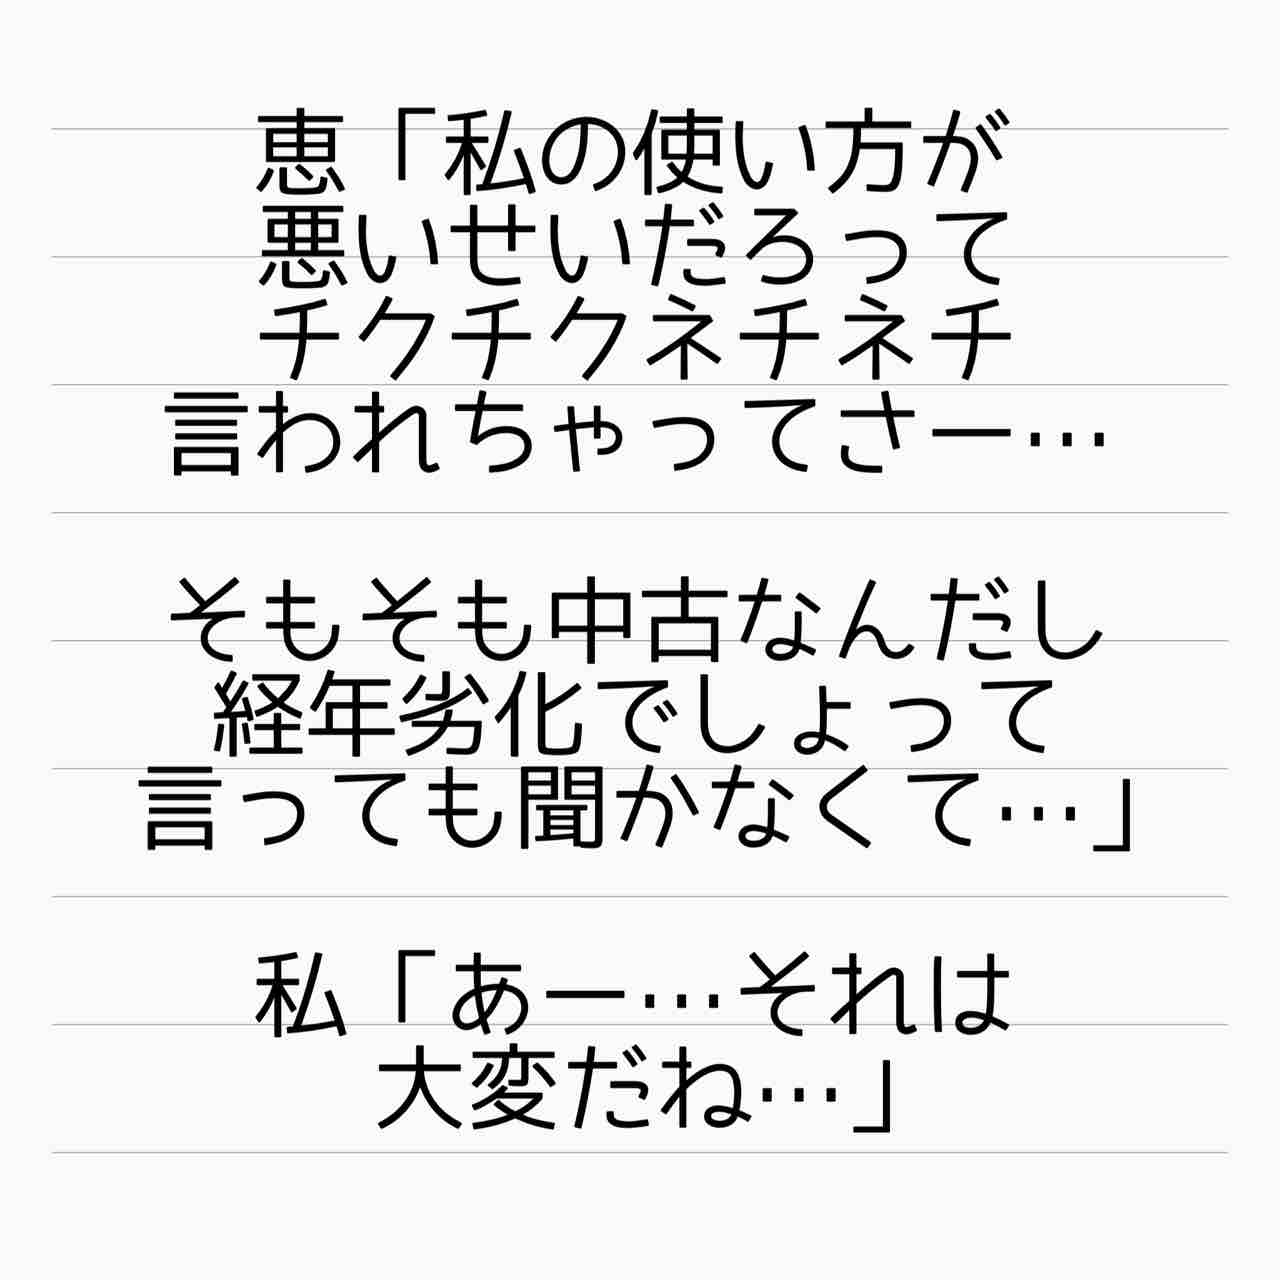 恵「私の使い方が
悪いせいだろって
チクチクネチネチ
言われちゃってさー…
そもそも中古なんだし
経年劣化でしょって
言っても聞かなくて…」
私「あー…それは
大変だね…」